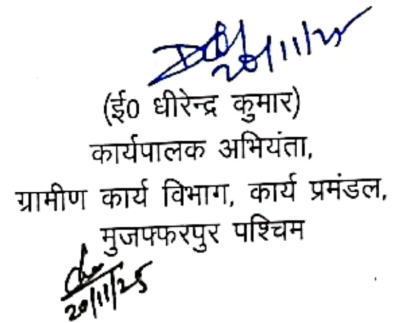 20/11/25
(ई0 धीरेन्द्र कुमार)
कार्यपालक अभियंता,
ग्रामीण कार्य विभाग, कार्य प्रमंडल,
मुजफ्फरपुर पश्चिम
20/11/25